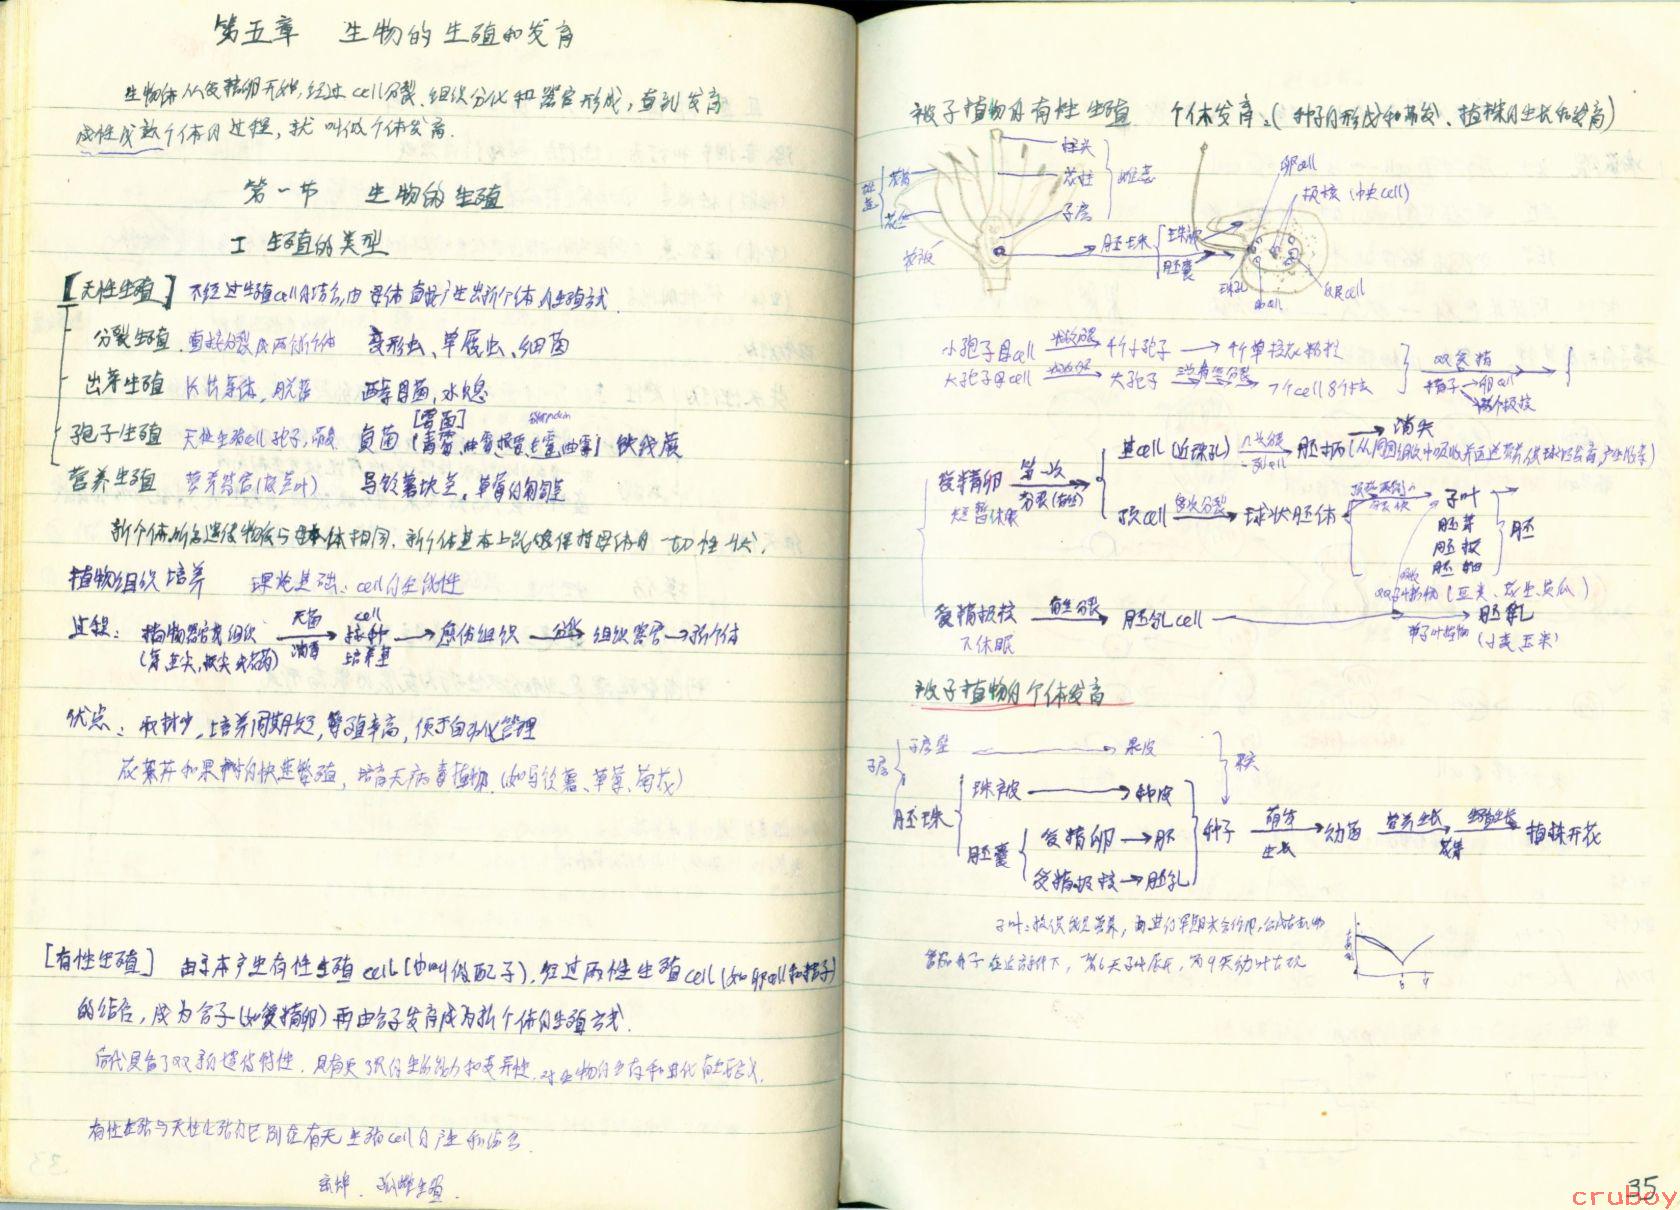 第五章 生物的生殖和发育
生物体从受精卵开始,经过cell分裂、组织分化和器官形成,直到发育
成性成熟个体的过程,就叫做个体发育.
第一节 生物的生殖
I 生殖的类型
[无性生殖] 不经过生殖cell的结合,由母体直接产生出新个体的生殖方式.
分裂生殖 直接分裂成两个新个体 变形虫、草履虫、细菌
出芽生殖 长出芽体,脱落 酵母菌,水螅
[霉菌]
孢子生殖 无性生殖cell孢子, 真菌 铁线蕨
营养生殖 营养器官(根茎叶) 马铃薯块茎,草莓的匍匐茎
新个体所含遗传物质与母体相同,新个体基本上能够保持母体的一切性状.
植物组织培养 理论基础:cell的全能性
过程: 植物器官或组织 无菌 消毒 → cell 接种 培养基 → 愈伤组织 —分化→ 组织器官 → 新个体
(芽尖,根尖或花药)
优点:取材少,培养周期短,繁殖率高,便于自动化管理
花卉和果树的快速繁殖,培育无病毒植物.(如马铃薯、草莓、菊花)
[有性生殖] 由亲本产生有性生殖cell(也叫做配子),经过两性生殖cell(如卵cell和精子)
的结合,成为合子(如受精卵)再由合子发育成为新个体的生殖方式.
后代具备了双亲的遗传特性,具有更强的生活能力和变异性,对生物的生存和进化有重要意义.
有性生殖与无性生殖的区别在有无生殖cell的产生和结合.
孤雌生殖.
被子植物的有性生殖 个体发育:(种子的形成和萌发、植株的生长和发育)
柱头
花柱
子房
雌蕊
花药
花丝
雄蕊
花被
→ 胚珠 { 珠被 胚囊
卵cell
极核(中央cell)
珠孔
反足cell
小孢子母cell 减数分裂→ 4个小孢子 → 4个单核花粉粒
大孢子母cell 减数分裂→ 大孢子 三次有丝分裂→ 7个cell 8个核
双受精
精子→卵cell
→两个极核
受精卵 第一次 分裂(有丝)
短暂休眠
基cell(近珠孔) 几次分裂→ 胚柄 → 消失
顶cell 多次分裂→ 球状胚体 → 子叶
胚芽
胚根
胚轴
胚
双子叶植物(豆类、花生、黄瓜)
受精极核 有丝分裂→ 胚乳cell → 胚乳
不休眠
单子叶植物 (小麦、玉米)
被子植物的个体发育
子房 { 子房壁 → 果皮
胚珠 { 珠被 → 种皮
胚囊 { 受精卵 → 胚
受精极核 → 胚乳
种子 萌发 生长→ 幼苗 营养生长→ 生殖生长 花芽→ 植株开花
35
cruboy